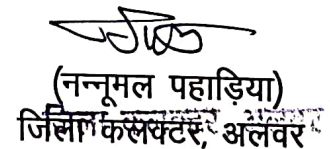 (नन्नूमल पहाड़िया)
जिला कलक्टर, अलवर